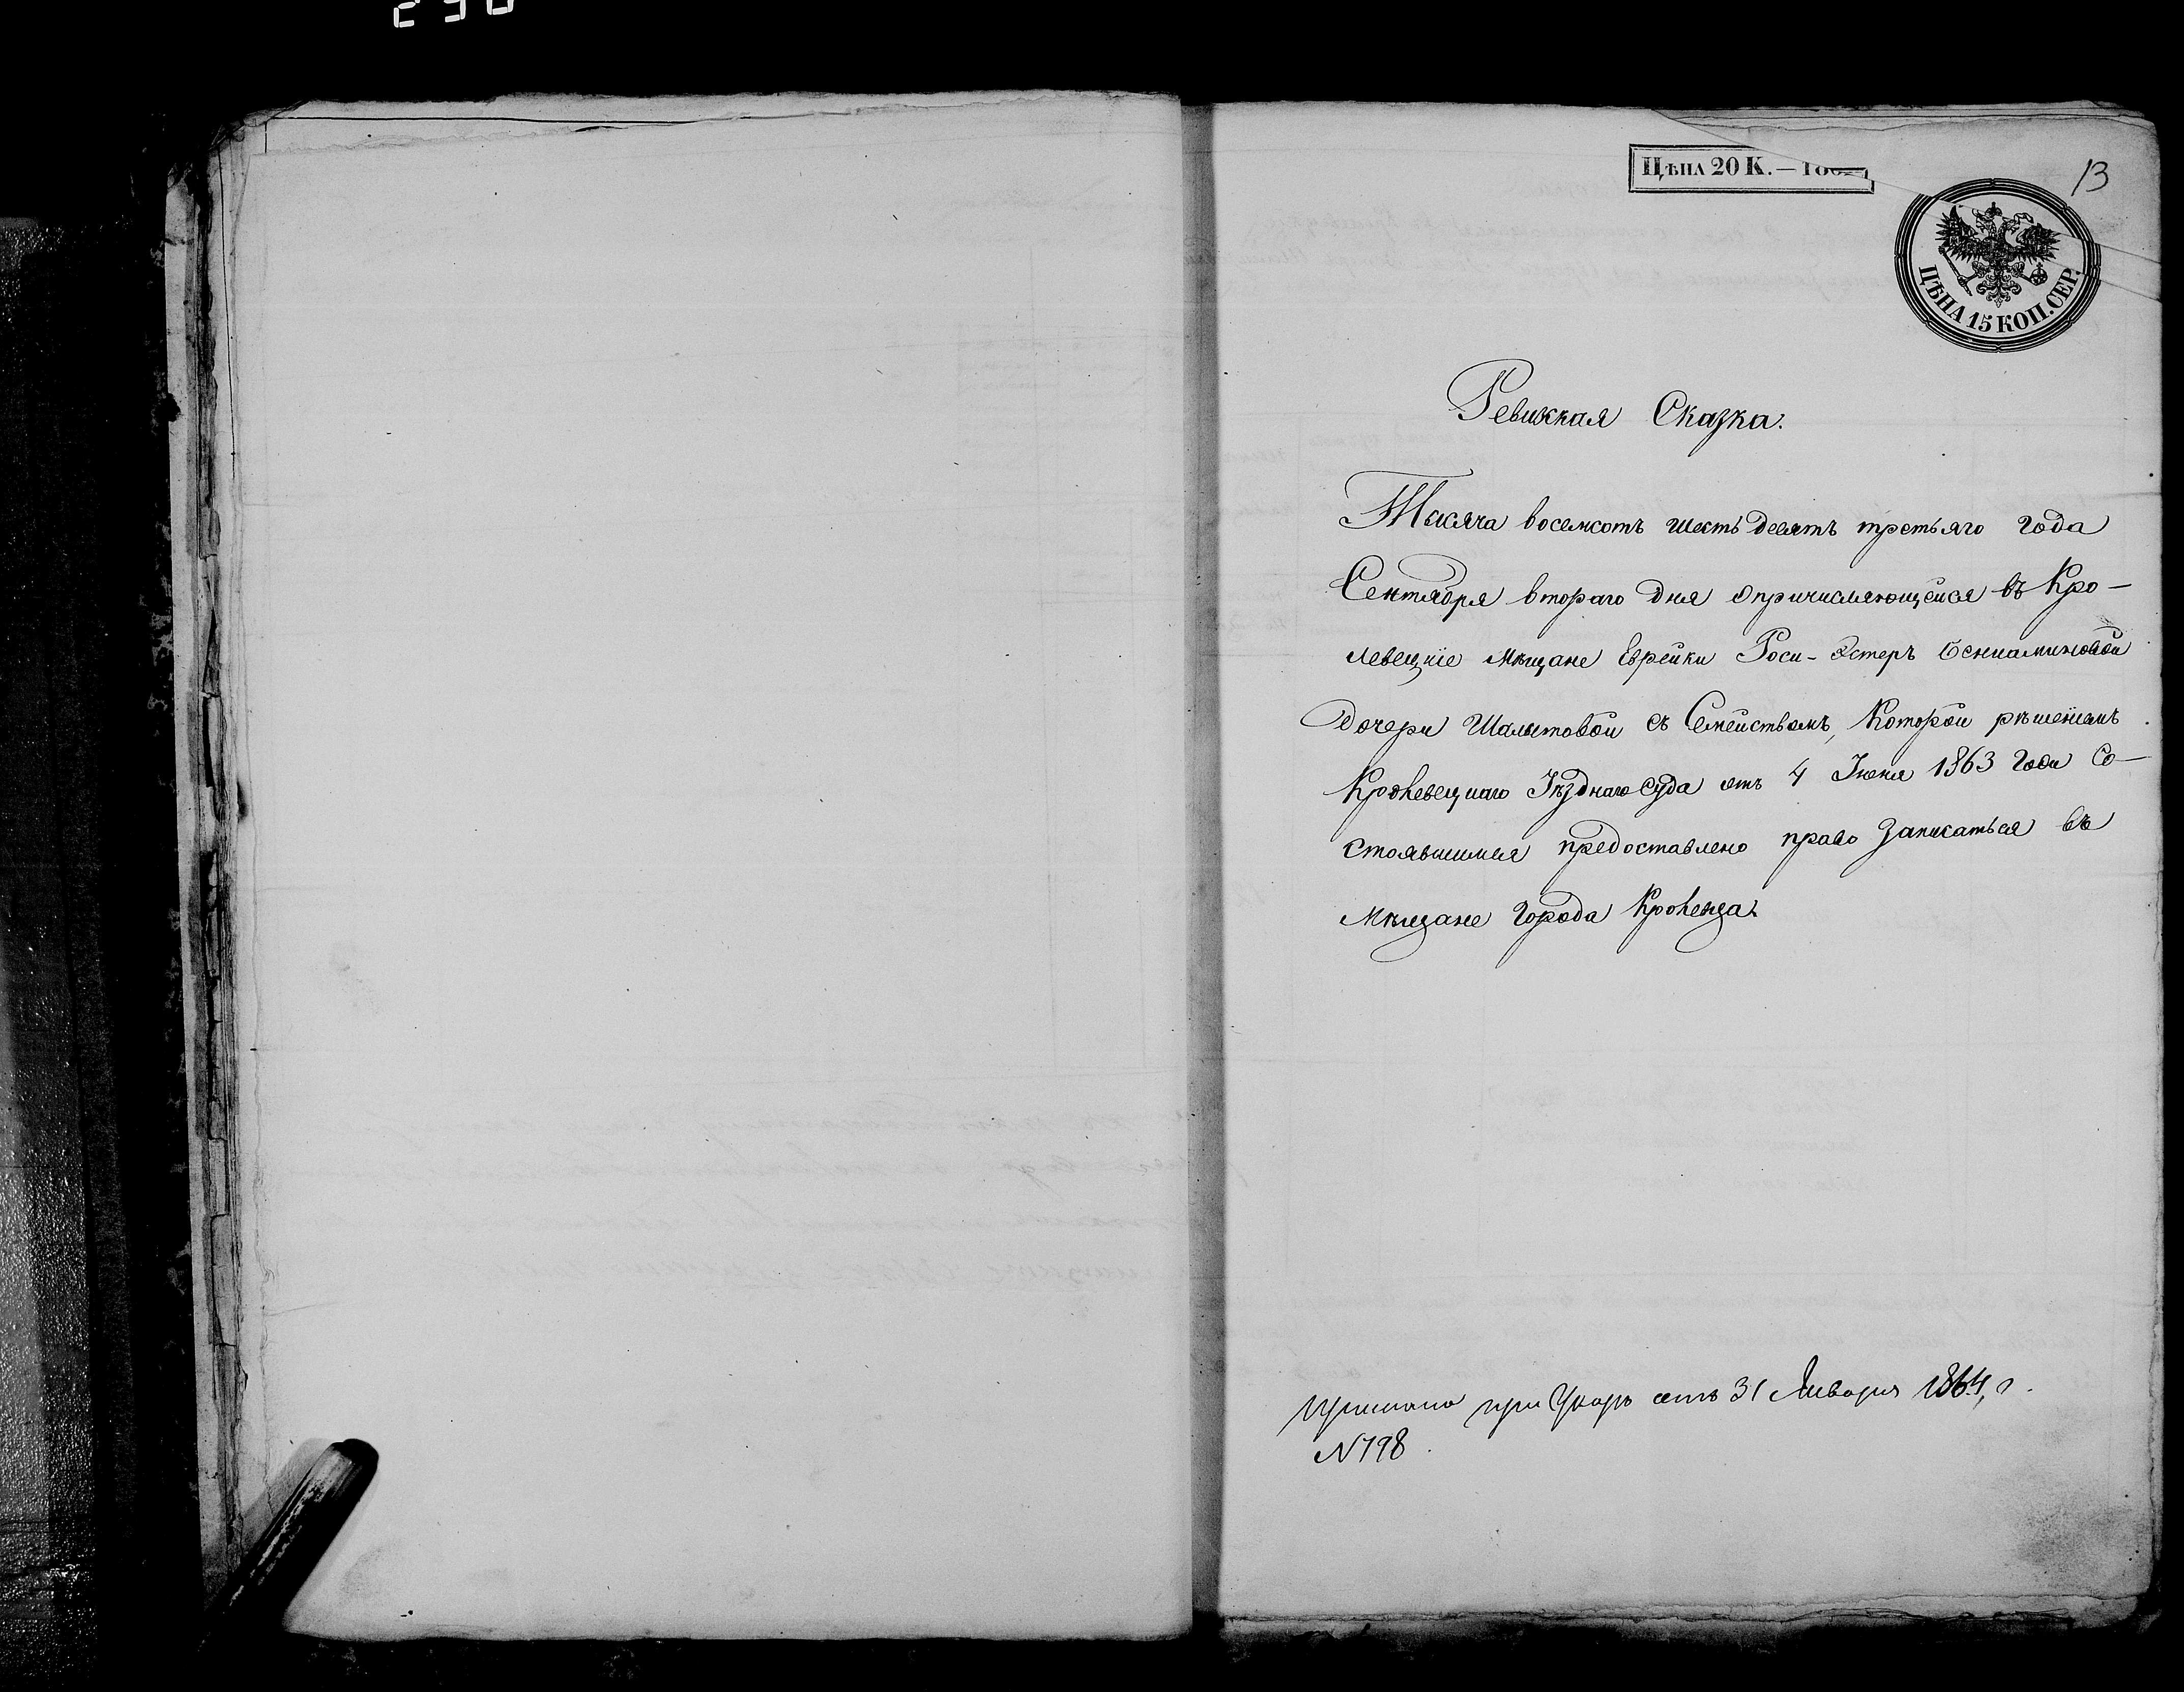 230
Цѣна 20 К. — 186
13
ЦѢНА 15 КОП. СЕР.
Ревижская Сказка.
Тысяча восемсотъ шестьдесятъ третьяго года
Сентября втораго дня опричисляющейся въ Кро-
левецкіе мѣщане Еврейки Роси-Эстеръ Бениаминовой
дочери Шалытовой съ Семействомъ, которой рѣшеніемъ
Кролевецкаго Уѣзднаго Суда отъ 4 Июня 1863 года Со-
стоявшимся предоставлено право записаться въ
мѣщане города Кролевца.
при Указѣ отъ 31 Января 1864, г.
N 798